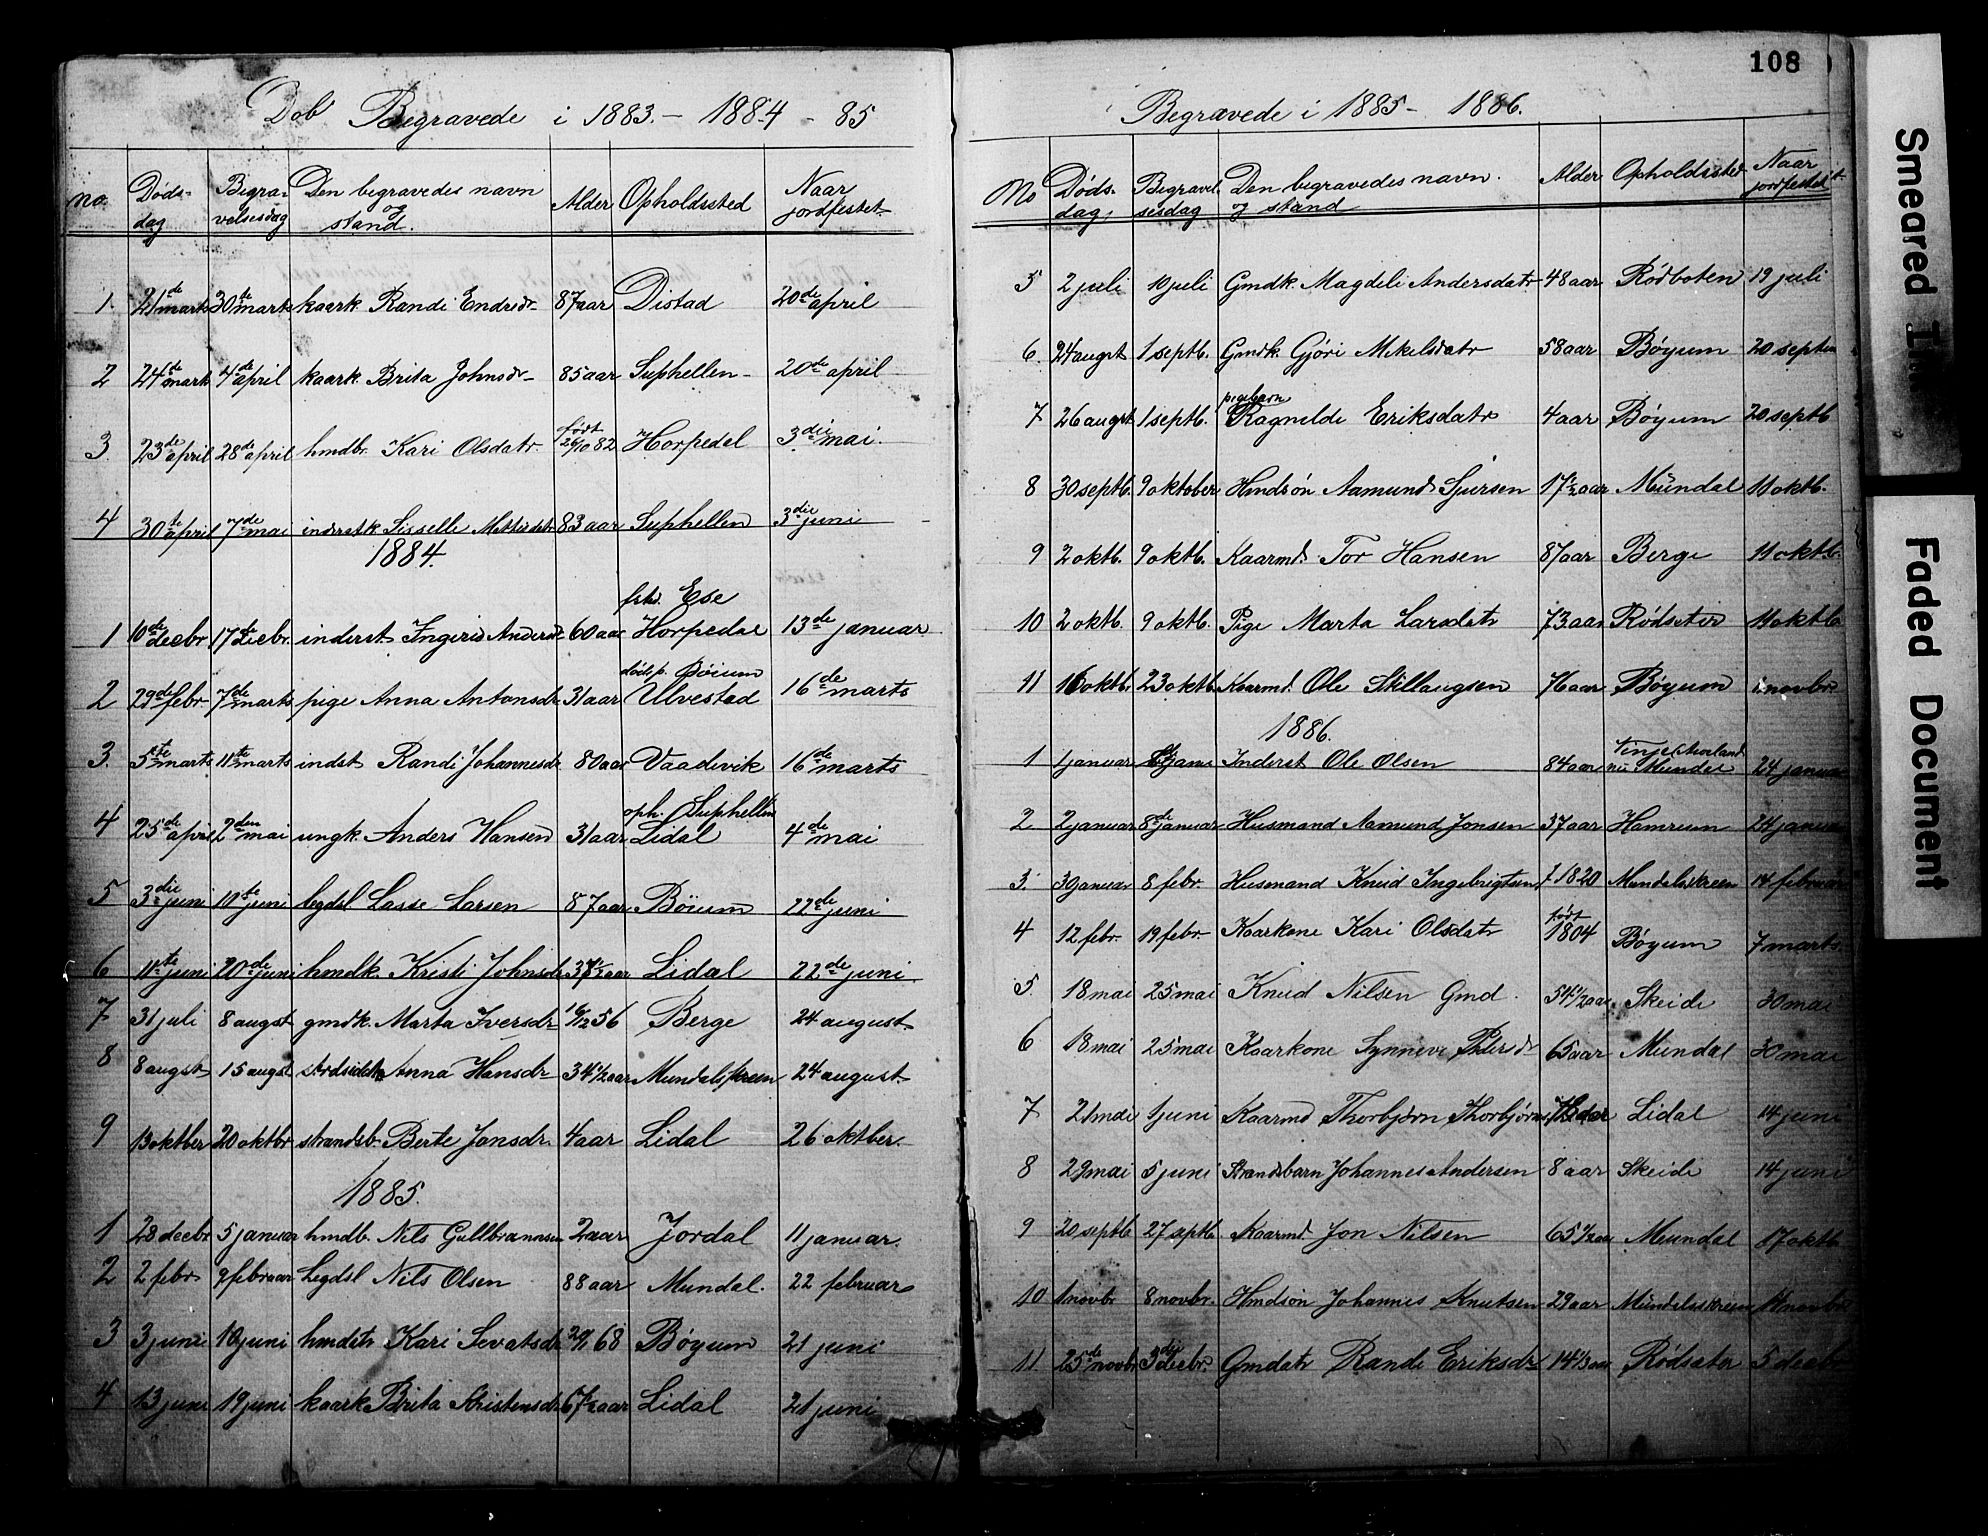 Begravede i 1883. - 1884 - 85
no. Dødsdag Begravelsesdag Den begravedes navn og stand. Alder Opholdssted Naar jordfestet
1. 21de marts 30te marts kaark. Randi Endresdr 87 aar Distad 20de april
2 24de marts 4de april kaark. Brita Johnsdr 85 aar Suphellen 20de april
3. 23de april 28de april hmdbr. Kari Olsdatr. født 26/10 82 Horpedal 3die mai.
4 30te april 7de mai inderstk. Sisselle 83 aar Suphellen 3die juni
1884.
1 10de decbr 17de decbr. inderst Ingerid Andersdr 60 aar Ese Horpedal 13de januar
2 29de febr. 7de marts pige Anna Antonsdr 31 aar dødsp. Böium Ulvestad 16de marts
3. 5te marts 11te marts indst Randi Johannesdr 80 aar Vaadevik 16de marts
4 25de april 2den mai ungk. Anders Hansen 31 aar oph. Suphellen Lidal 4de mai
5 3die juni 10te juni legdsl. Lasse Larsen 87 aar Böium 22de juni
6 11te juni 20de juni hmdk. Kristi Johnsdr Lidal 22de juni.
7 31 juli 8 augst gmdk. Marta Iversdr 16/12 56 Berge 24 august
8 8 augst 15 augst Anna Hansdr 34 1/2 aar Mundalsskreen 24 august
9 13 oktber 20 oktbr strandsb. Berte Jonsdr. 4 aar Lidal 26 oktber.
1885.
1 28 decbr 5 januar hmdb. Nils Gullbrannsen 2 aar Jordal 11 januar.
2 2 febr 9 februar Legdsl Nils Olsen 88 aar Mundal. 22 februar
3 3 juni 10 juni hmdatr Kari Sevatsdr 20/1 68 Bøyum 21 juni
4 13 juni 19 juni kaark Brita Kristensdr 67 1/2 aar Lidal 21 juni
108
Begravede i 1885 - 1886.
No Dødsdag. Begravelsesdag Den begravedes navn. og stand Alder Opholdssted Naar jordfestet
5 2 juli 10 juli Gmdk. Magdeli Andersdatr 48 aar Rødboten 19 juli
6. 24 augst 1 septb. Gmdk. Gjöri Mikelsdatr 58 aar Bøyum 20 septem
7 26 augst 1 septb. pigebarn Ragnilde Eriksdatr 4 aar Bøyum 20 septb
8 30 septb. 9 oktober Hmdsøn Aamund Sjursen 17 1/2 aar Mundal 11 oktb.
9 2 oktb. 9 oktb. Kaarmd. Tor Hansen 87 aar Berge 11 oktb.
10 2 oktb. 9 oktb. Pige Marta Larsdatr 73 aar Rødseter 11 oktb.
11 16 oktb. 23 oktb. Kaarmd. Ole Stillaugsen 76 aar Bøyum 1 novbr
1886.
1 1 januar Inderst Ole Olsen 84 aar nu Mundal 24 januar
2 2 januar 8de januar Husmand Aamund Jonsen 37 aar Hamrum 24 januar
3. 30 januar 8 febr. Husmand Knud Ingebrigtsen f 1820 Mundalsskreen 14 februar
4 12 febr. 19 febr. Kaarkone Kari Olsdatr født 1804 Bøyum 7 marts
5. 18 mai 25 mai Knud Nilsen Gmd. 54 1/2 aar Skeide 30 mai
6 18 mai 25 mai Kaarkone Synneve Pedersdr 65 aar Mundal 30 mai
7 21 mai 1 juni Kaarmd Thorbjørn Thorbjørns Lidal 14 juni
8 29 mai 5 juni Strandsbarn Johannes Andersen 8 aar Skeide 14 juni
9 20 septb 27 septb. Kaarmd. Jon Nilsen 65 1/2 aar Mundal 17 oktb
10 1 novbr 8 novbr. Hmdsøn Johannes Knutsen 29 aar Mundalsskreen 14 novbr
11. 25de novbr 3die decbr. Gmdatr Rande Eriksdr 14 1/3 aar Rødsæter 5 decbr
Smeared
Faded Document